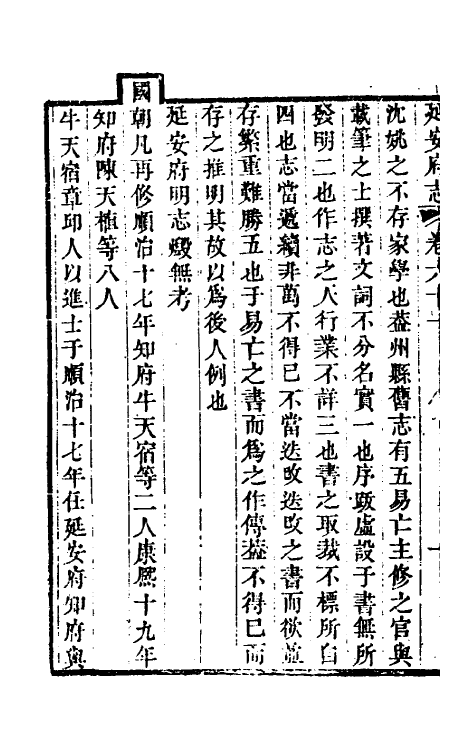 延安府志 卷六十
沈姚之不存家學也葢州縣舊志有五易亡主修之官與
載筆之士撰著文詞不分名實一也序跋虛設于書無所
發明二也作志之人行業不詳三也書之取裁不標所自
四也志當遞續非萬不得已不當迭攺迭攺之書而欲竝
存繁重難勝五也于易亡之書而爲之作傳葢不得已而
存之推明其故以爲後人例也
延安府明志燬無考
國朝凡再修順治十七年知府牛天宿等二人康熈十九年
知府陳天植等八人
牛天宿章邱人以進士于順治十七年任延安府知府與